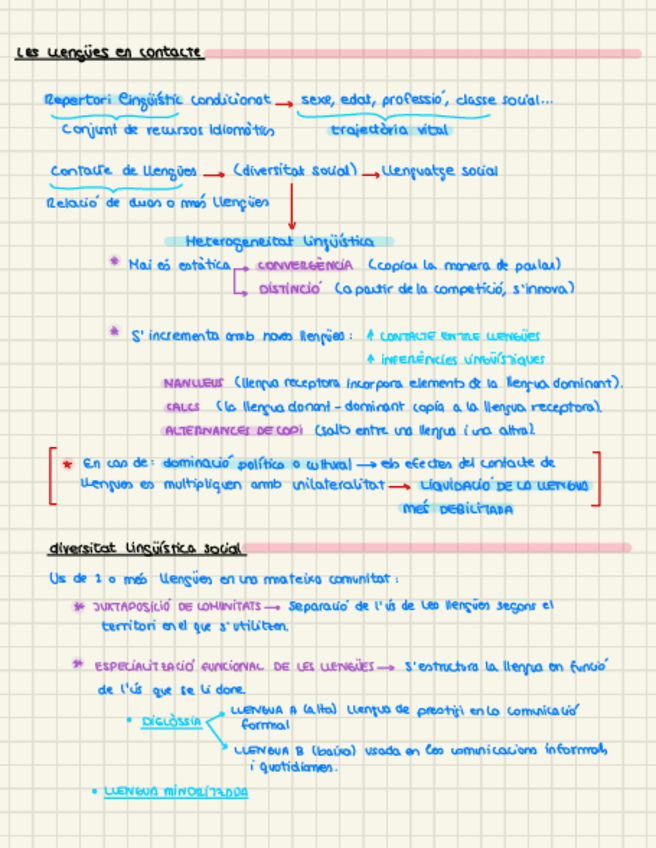 Les llengües en contacte
Repertori lingüístic condicionat → sexe, edat, professió, classe social...
Conjunt de recursos idiomàtics trajectòria vital
Contacte de llengües → (diversitat social) → Llenguatge social
Relació de dues o més llengües
Heterogeneïtat lingüística
* Mai és estàtica CONVERGÈNCIA (copiar la manera de parlar)
DISTINCIÓ (a partir de la competició, s'innova)
* S'incrementa amb noves llengües: ↑ CONTACTE ENTRE LLENGÜES
↑ INFERÈNCIES LINGÜÍSTIQUES
MANLLEUS (llengua receptora incorpora elements de la llengua dominant).
CALCS (la llengua donant - dominant copia a la llengua receptora).
ALTERNANCES DE CODI (salts entre una llengua i una altra).
★ En cas de: dominació política o cultural → els efectes del contacte de
llengües es multipliquen amb unilateralitat → LIQUIDACIÓ DE LA LLENGUA
MÉS DEBILITADA
diversitat lingüística social
Us de 2 o més llengües en una mateixa comunitat:
* JUXTAPOSICIÓ DE COMUNITATS → Separació de l'ús de les llengües segons el
territori en el que s'utilitzen.
* ESPECIALITZACIÓ FUNCIONAL DE LES LLENGÜES → S'estructura la llengua en funció
de l'ús que se li dona
• DIGLÒSSIA LLENGUA A (alta) llengua de prestigi en la comunicació
formal
LLENGUA B (baixa) usada en les comunicacions informals,
i quotidianes.
• LLENGUA MINORITZADA